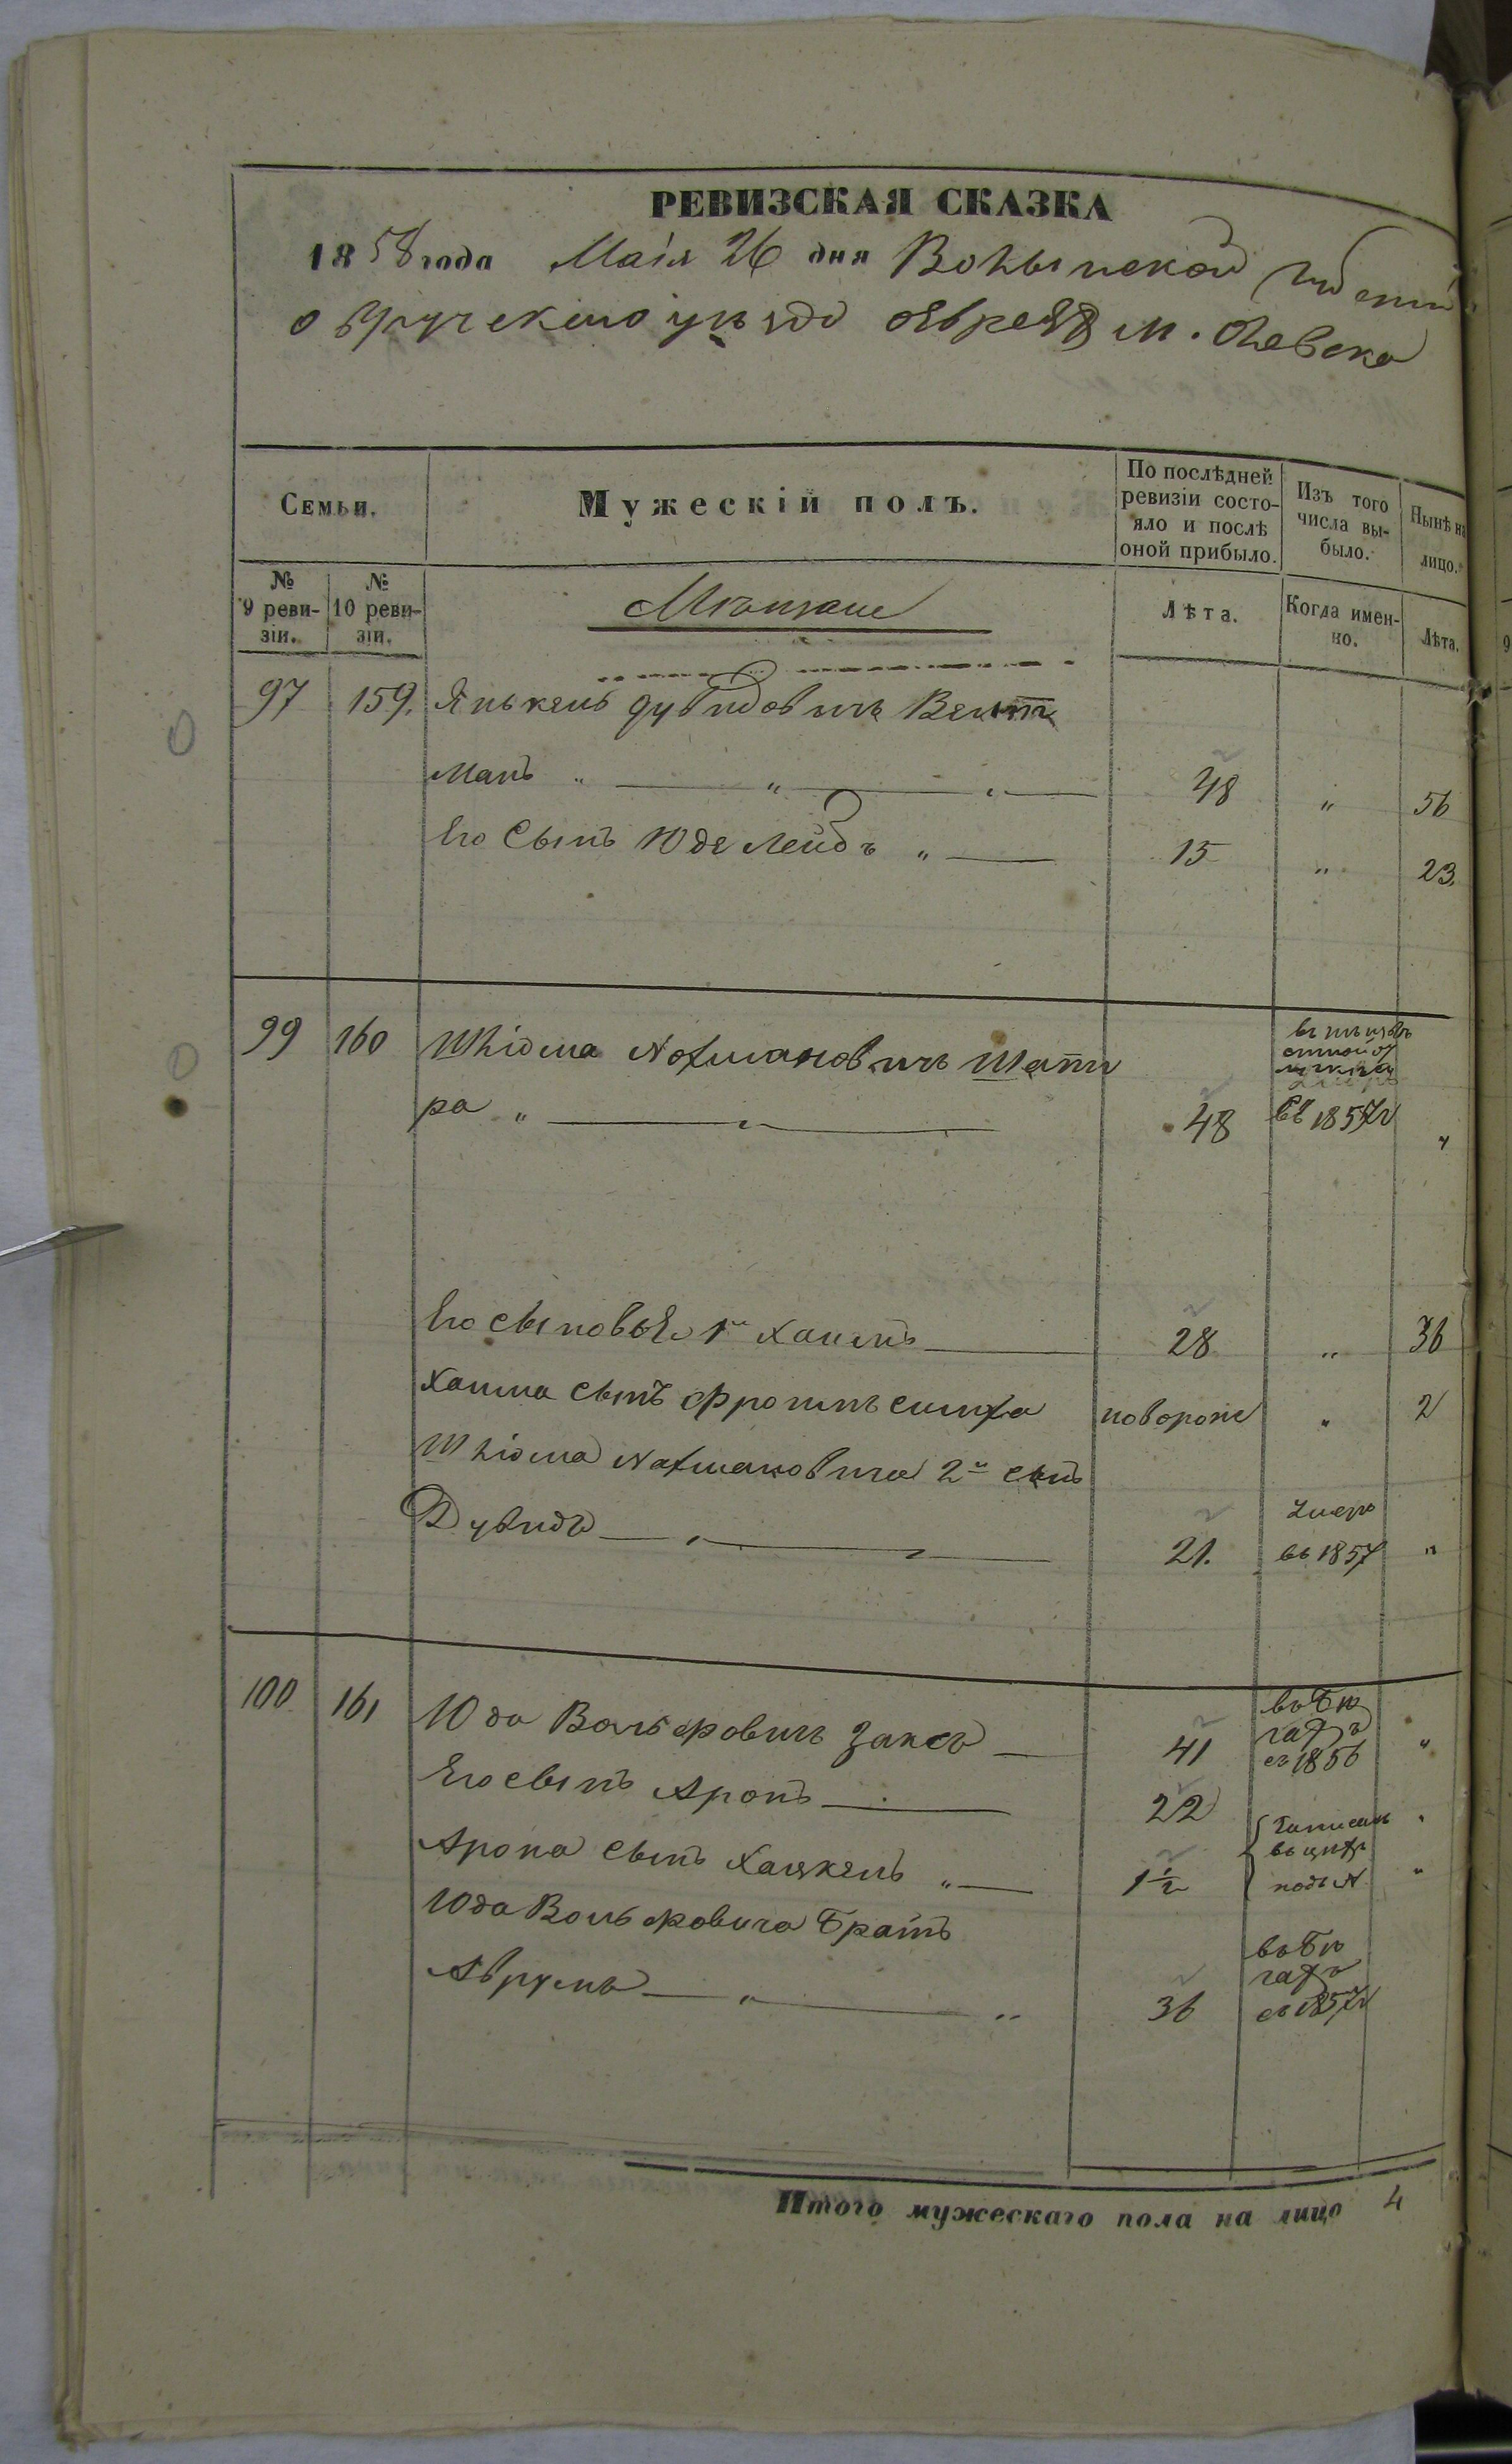 РЕВИЗСКАЯ СКАЗКА
1858 года Маія 26 дня Волынской
овручскаго уѣзда евреевъ м. Олевска
Семьи.
Мужескій полъ.
По послѣдней ревизіи состо-
яло и послѣ оной прибыло.
Изъ того числа вы-
было.
Нынѣ на лицо.
№ 9 реви-
зіи.
№ 10 реви-
зіи.
Мѣщане
Лѣта.
Когда имен-
но.
Лѣта.
97 159. Янькель дувидовичъ Вейт
манъ " " " 48 " 56
Его Сынъ Юде Лейбъ " 15 " 23.
99 160 Шліома Нохмановичъ Шапи
ра " 48 въ 1857 г "
Его сыновья 1й Хаимъ 28 " 36
Хаима сынъ Фроимъ симха 2
Шліома Нахмановича 2й сынъ
Дувидъ 21. Умеръ въ 1857 "
100 161 Юда Вольфовичъ Заксъ 41 въ бѣ
гахъ
съ 1856 "
Его сынъ Аронъ 22 Записанъ "
Арона сынъ Хацкель " 1½ подъ №. "
Юда Вольфовича Братъ
Аврумъ " " 36 въ бѣ
гахъ
съ 1857 г
Итого мужескаго пола на лицо 4